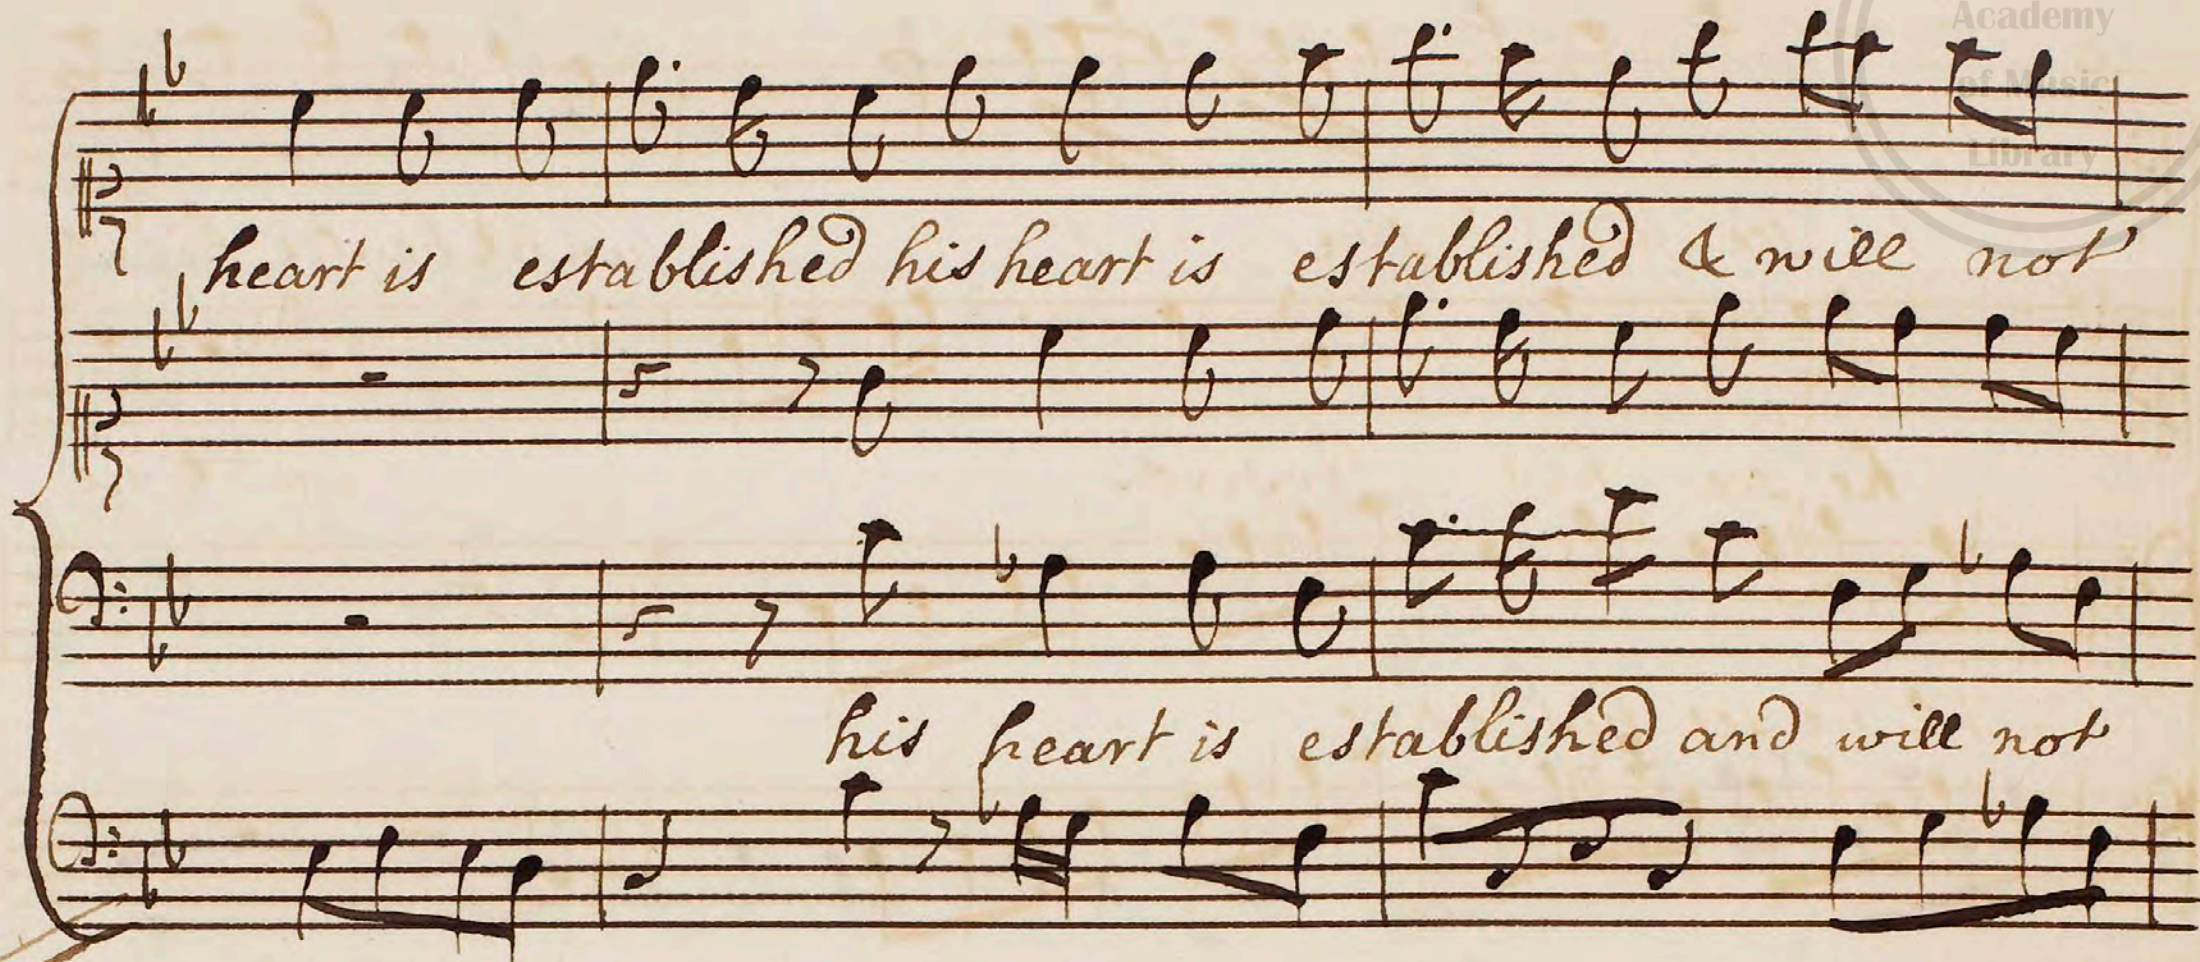 Academy
of Music
Library
heart is established his heart is established & will not
his heart is established and will not